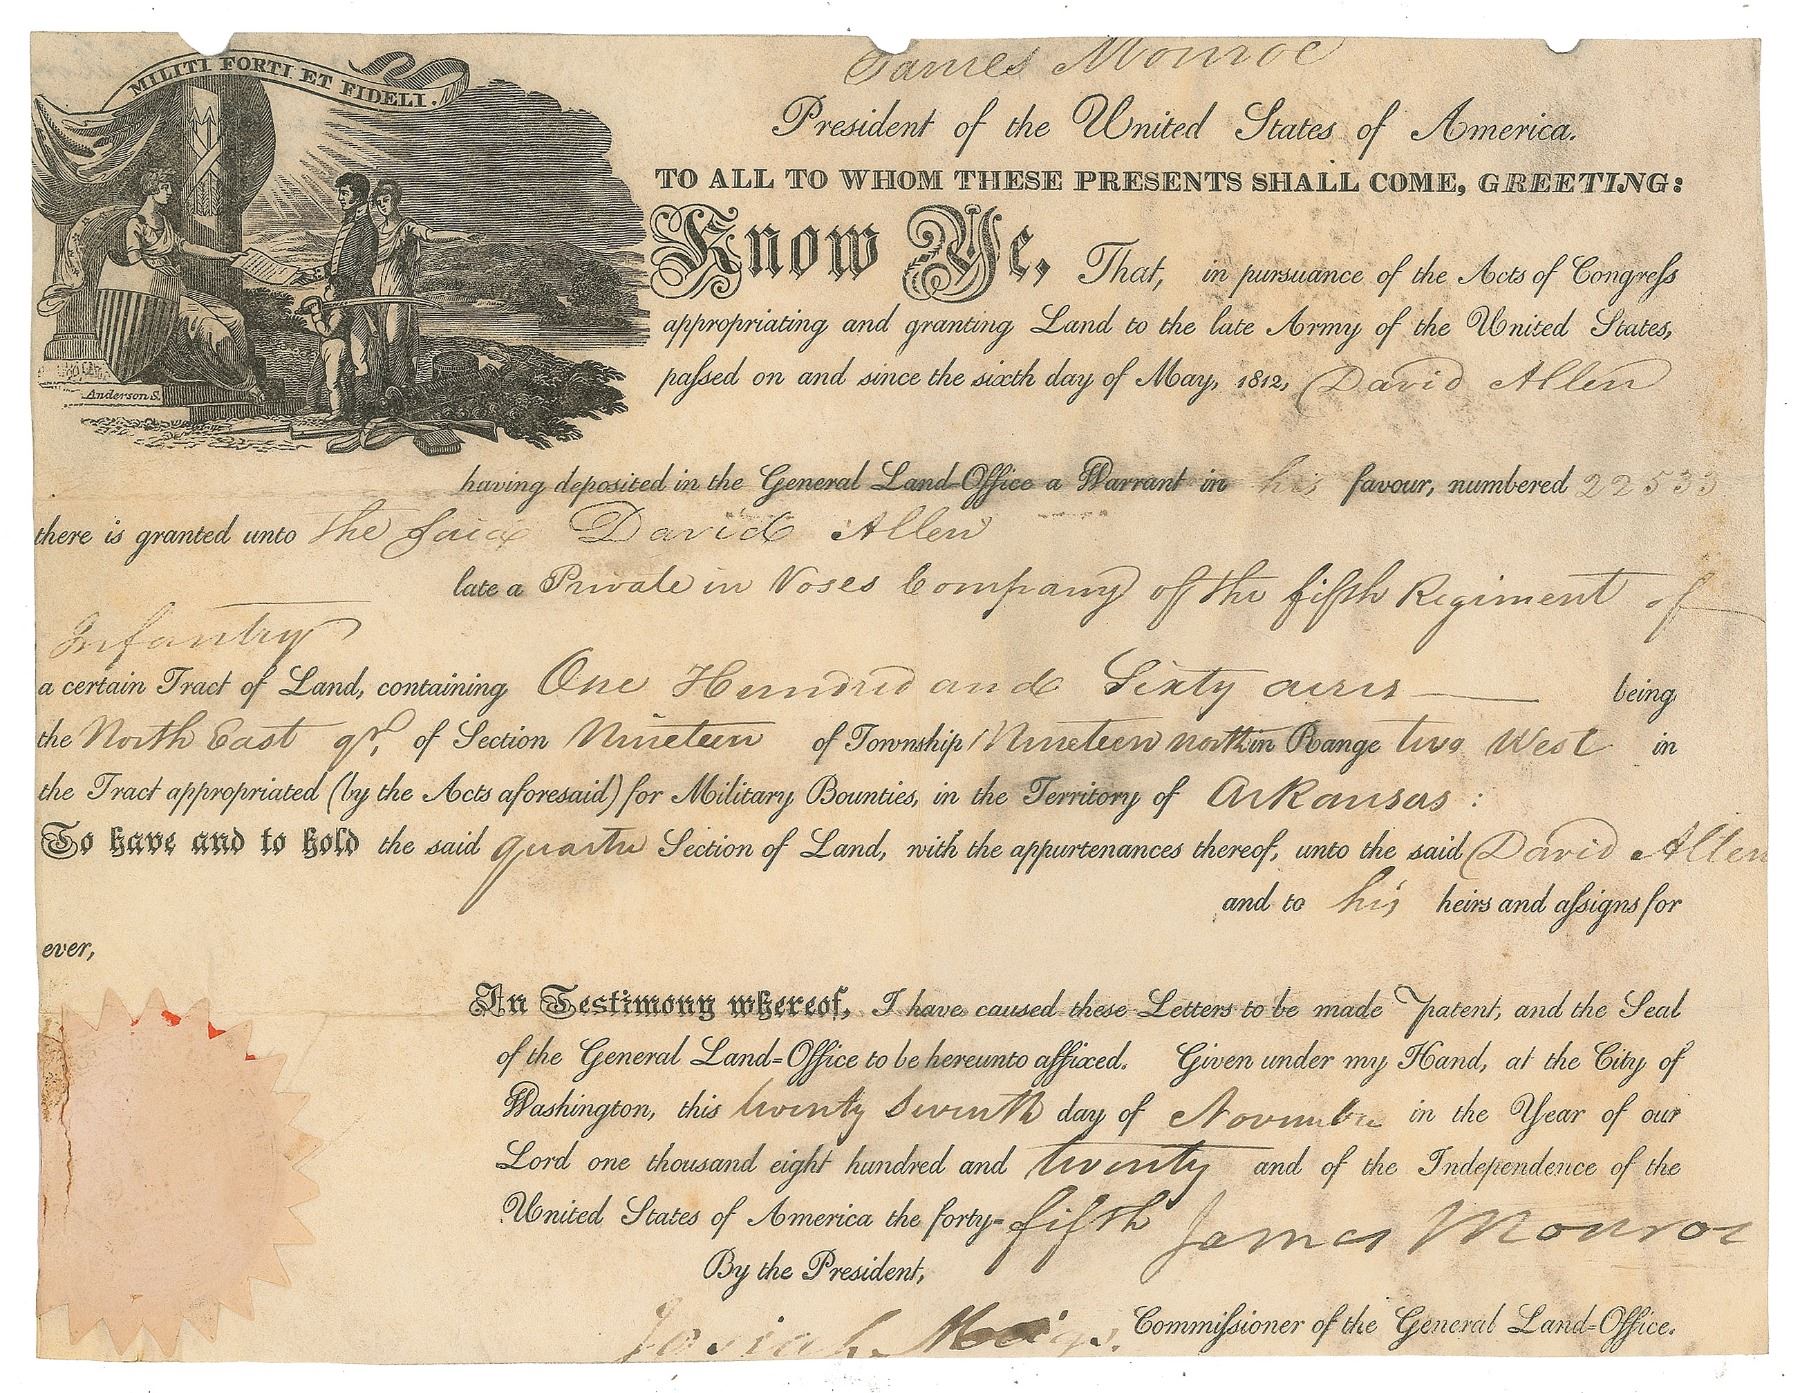 MILITI FORTI ET FIDELI.
Anderson S.
James Monroe
President of the United States of America.
TO ALL TO WHOM THESE PRESENTS SHALL COME, GREETING:
Know Ye, That, in pursuance of the Acts of Congreſs
appropriating and granting Land to the late Army of the United States,
paſsed on and since the sixth day of May, 1812, David Allen
having deposited in the General Land-Office a Warrant in his favour, numbered 22533
there is granted unto the said David Allen
late a Private in Voses Company of the fifth Regiment of
Infantry
a certain Tract of Land, containing One Hundred and Sixty acres being
the North East qr. of Section Nineteen of Township Nineteen north in Range two West in
the Tract appropriated (by the Acts aforesaid) for Military Bounties, in the Territory of Arkansas:
To have and to hold the said quarter Section of Land, with the appurtenances thereof, unto the said David Allen
and to his heirs and aſsigns for
ever,
In Testimony whereof, I have caused these Letters to be made Patent, and the Seal
of the General Land-Office to be hereunto affixed. Given under my Hand, at the City of
Washington, this twenty Seventh day of November in the Year of our
Lord one thousand eight hundred and twenty and of the Independence of the
United States of America the forty-fifth James Monroe
By the President,
Josiah Meigs. Commiſsioner of the General Land-Office.